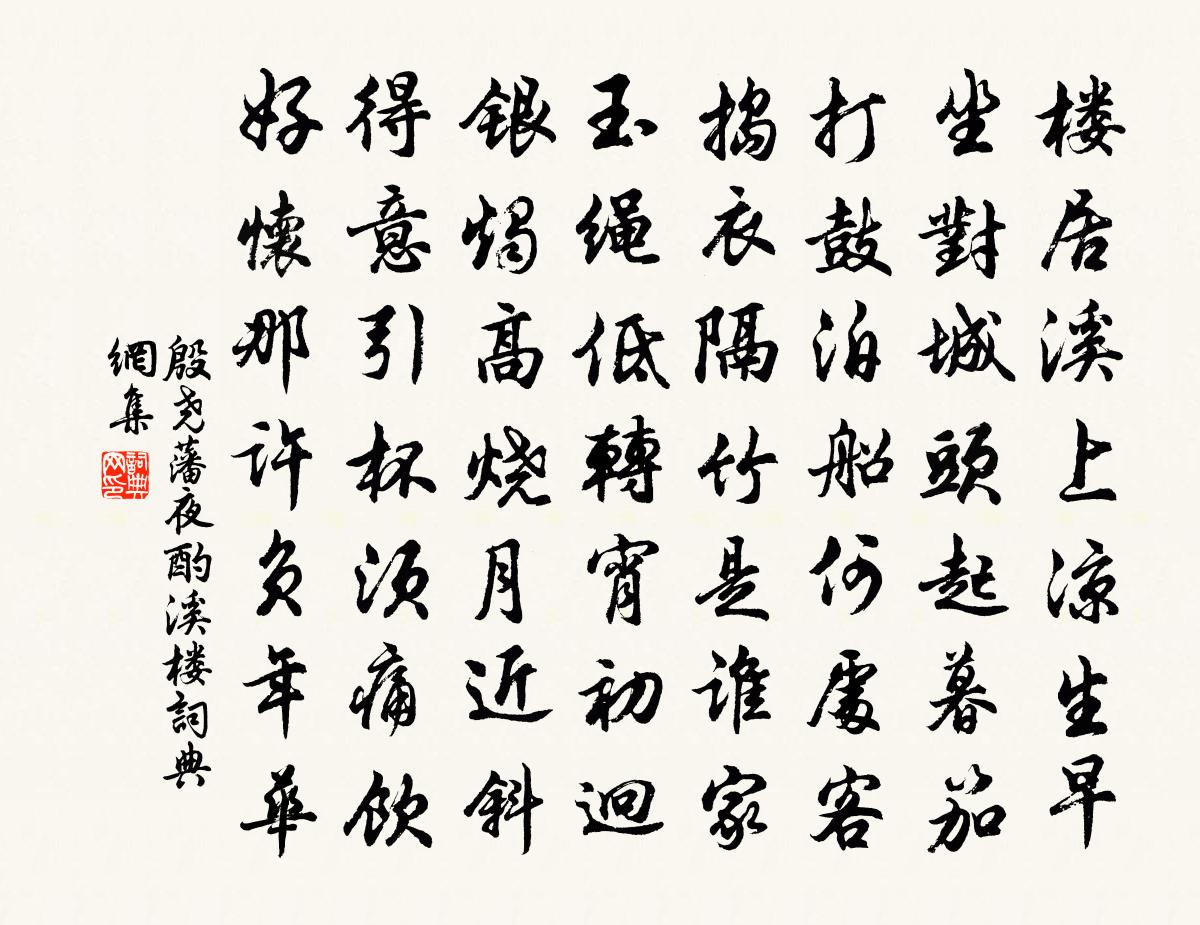 楼居溪上凉生早
坐對城頭起暮笳
打鼓泊船何處客
搗衣隔竹是谁家
玉绳低轉宵初迥
銀燭高烧月近斜
得意引杯须痛飲
好懷那许负年華
殷尧藩夜酌溪楼詞典
網集
詞典
网印